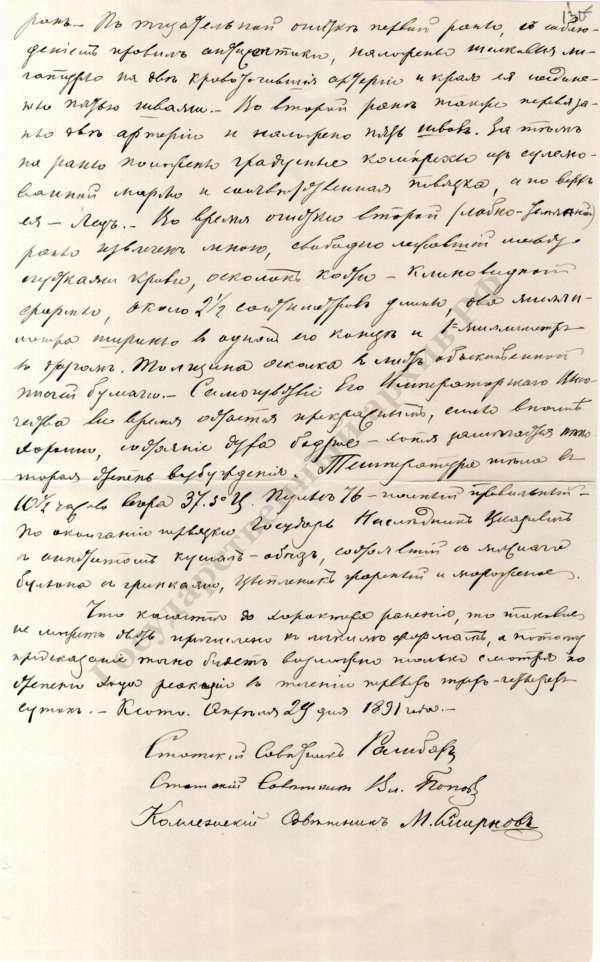 135
ранъ. – По тщательной очисткѣ первой раны, съ соблю-
деніемъ правилъ антисептики, наложены шелковыя ли-
гатуры на двѣ кровоточившія артеріи и края ея соедине-
ны пятью швами. – Во второй ранѣ также перевяза-
ны двѣ артеріи и наложено пять швовъ. Затѣмъ
на раны положены градусные компрессы изъ сулемо-
ванной марли и соотвѣтственная повязка, а по верхъ
ея – ледъ. – Во время очистки второй (лобно-теменной)
раны извлеченъ мною, свободно лежавшій между
сгустками крови, осколокъ кости – клиновидной
формы, около 2½ сантиметровъ длины, два милли-
метра ширины въ одномъ его концѣ и 1 миллиметръ
въ другомъ. Толщина осколка въ листъ обыкновенной
писчей бумаги. – Самочувствіе Его Императорскаго Высо-
чества во время остается прекраснымъ, силы вполнѣ
хороши, состояніе духа бодрое – хотя замѣчается нѣко-
торая степень возбужденія. Температура тѣла въ
10½ часовъ вечера 37.5° Ц. Пульсъ 76 – полный правильный –
По окончаніи перевязки Государь Наслѣдникъ Цесаревичъ
съ аппетитомъ кушалъ обѣдъ, состоявшій съ мяснаго
бульона съ гренками, цыпленка и мороженое.
Что касается до характера раненія, то таковое
не можетъ быть причислено къ легкимъ формамъ, а потому
предсказаніе точно будетъ возможно только смотря по
степени хода реакціи въ теченіи первыхъ трехъ-четырехъ
сутокъ. – Кіото. Апрѣля 29 дня 1891 года. –
Статскій Совѣтникъ Рамбахъ
Статскій Совѣтникъ Вл. Поповъ
Коллежскій Совѣтникъ М. Смирновъ
Государственный архив РФ